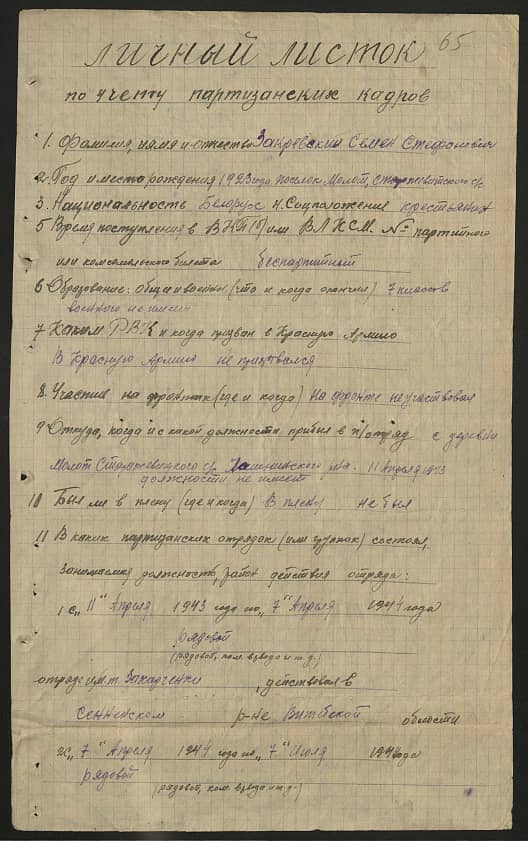 65
личный листок
по учету партизанских кадров
1. Фамилия, имя и отчество Закревский Семен Стефанович
2. Год и место рождения 1923 года поселок Молот,
3. Национальность Белорус 4. Соцположение крестьянин
5 Время поступления в ВКП(б) или ВЛКСМ. № партийного
или комсомольского билета беспартийный
6 Образование: общее и военное (что и когда окончил) 7 классов
военного не имеет
7 Каким РВК и когда призван в Красную Армию
В Красную Армию не призывался
8. Участие на фронтах (где и когда) на фронте не участвовал
9 Откуда, когда и с какой должности прибыл в п/отряд с деревни
Молот с/с р-на. 11 Апреля 1943
должности не имеет
10 Был ли в плену (где и когда) В плену не был
11 В каких партизанских отрядах (или группах) состоял,
занимаемая должность, район действия отряда:
1 с „11" Апреля 1943 года по „7" Апреля 1944 года
рядовой
(рядовой, ком. взвода и т.д.)
отряде им. действовал в
Сенненском р-не Витебской области
2 с „7" Апреля 1944 года по „7" Июля 1944 года
рядовой
(рядовой, ком. взвода и т.д.)